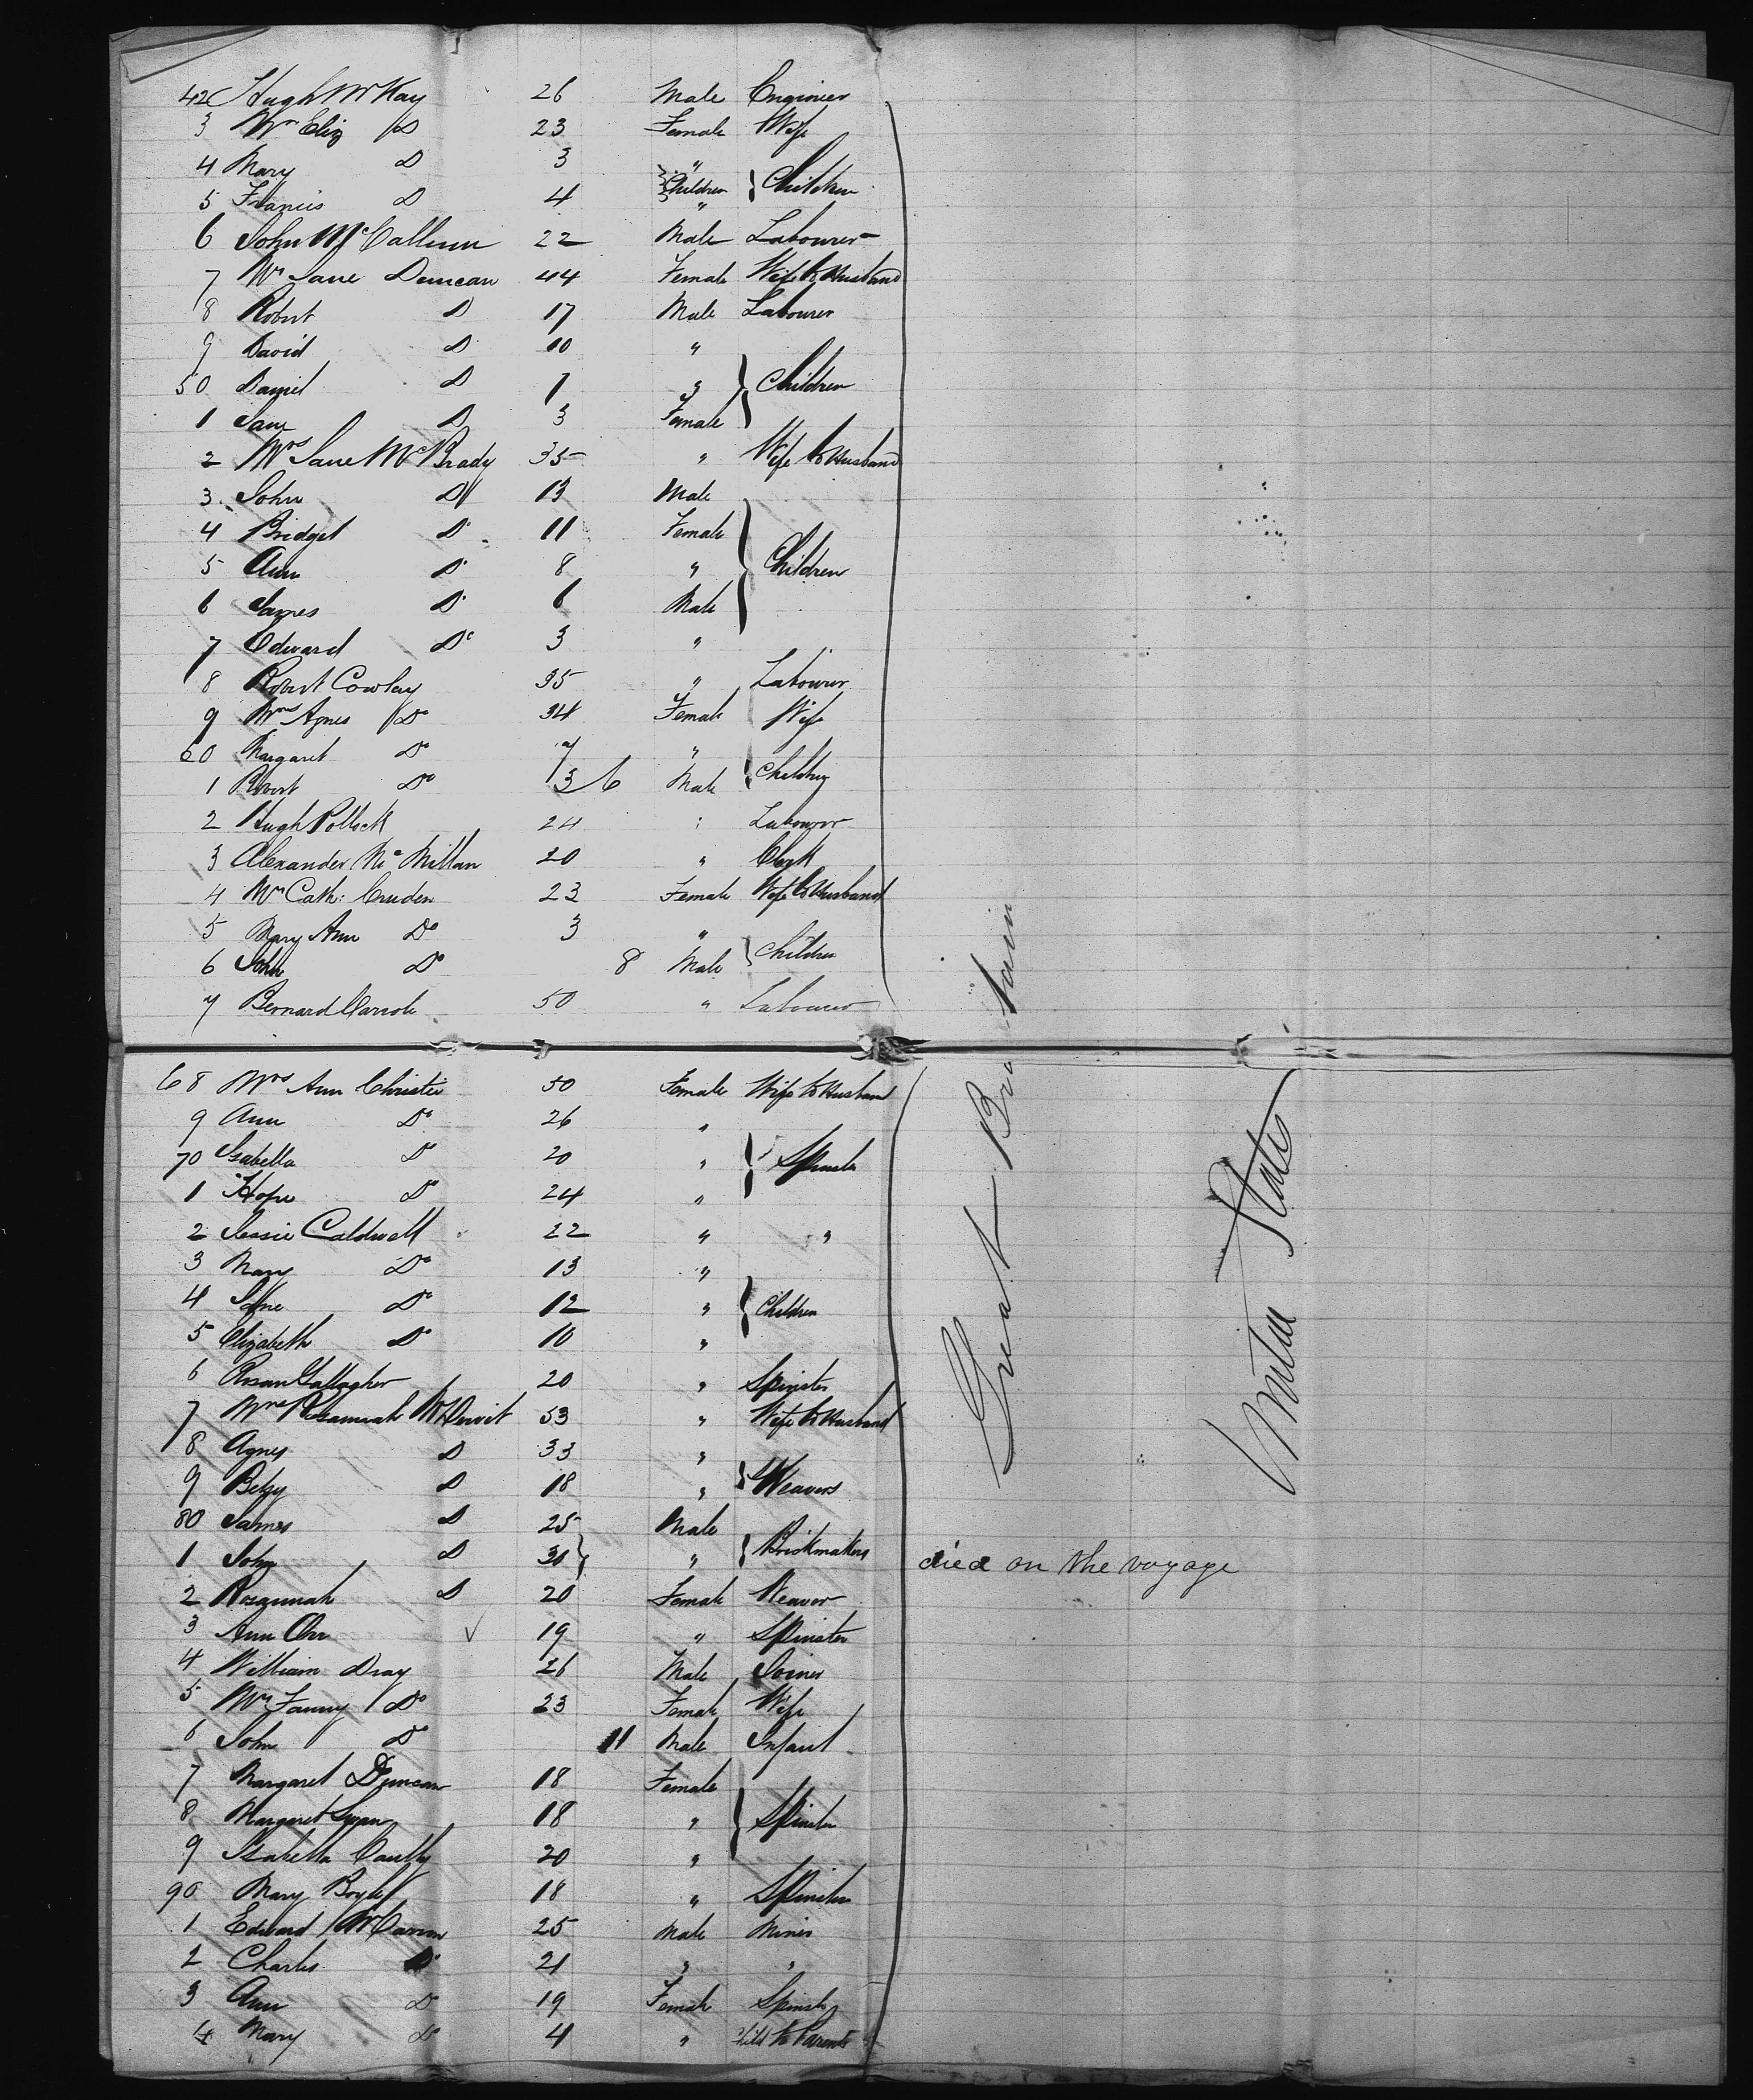 42 Hugh McKay 26 Male Engineer
3 Mrs Eliz Do 23 Female Wife
4 Mary D 3 " Children
5 Francis D 4 Children " 
6 John McCallum 22 Male Labourer
7 Mrs Jane Duncan 44 Female Wife to Husband
8 Robert D 17 Male Labourer
9 David D 10 "
50 Daniel D 7 " Children
1 Jane D 3 Female
2 Mrs Jane McBrady 35 " Wife to Husband
3 John D 13 Male
4 Bridget D 11 Female
5 Ann D 8 " Children
6 James D 6 Male
7 Edward Do 3 "
8 Robert Cowley 35 " Labourer
9 Mrs Agnes Do 34 Female Wife
60 Margaret Do "
1 Robert Do 3 6 Male
2 Hugh Pollock 24 " Labourer
3 Alexander McMillan 20 " Clerk
4 Mrs Cath: Cruden 23 Female Wife to Husband
5 Mary Ann Do 3 "
6 John Do 8 Male Children
7 Bernard 50 " Labourer
68 Mrs Ann Christie 50 Female Wife to Husband
9 Ann Do 26 "
70 Isabella Do 20 " Spinster
1 Hope Do 24 "
2 Jessie Caldwell 22 " "
3 Mary Do 13 "
4 Jane Do 12 " Children
5 Elizabeth Do 10 "
6 Rosan Gallagher 20 " Spinster
7 Mrs Rosannah 53 " Wife to Husband
8 Agnes D 33 "
9 Betsy D 18 " Weavers
80 James D 25 Male
1 John D 30 " Brickmakers died on the voyage
2 Rosannah D 20 Female Weaver
3 Ann Orr 19 " Spinster
4 William Dray 26 Male Joiner
5 Mrs Fanny Do 23 Female Wife
6 John Do 11 Male Infant
7 Margaret Duncan 18 Female
8 Margaret 18 " Spinster
9 Isabella 20 "
90 Mary 18 " Spinster
1 Edward McCarron 25 Male Miner
2 Charles D 21 " "
3 Ann D 19 Female Spinster
4 Mary D 4 " Child to Parents
Great Britain
United States